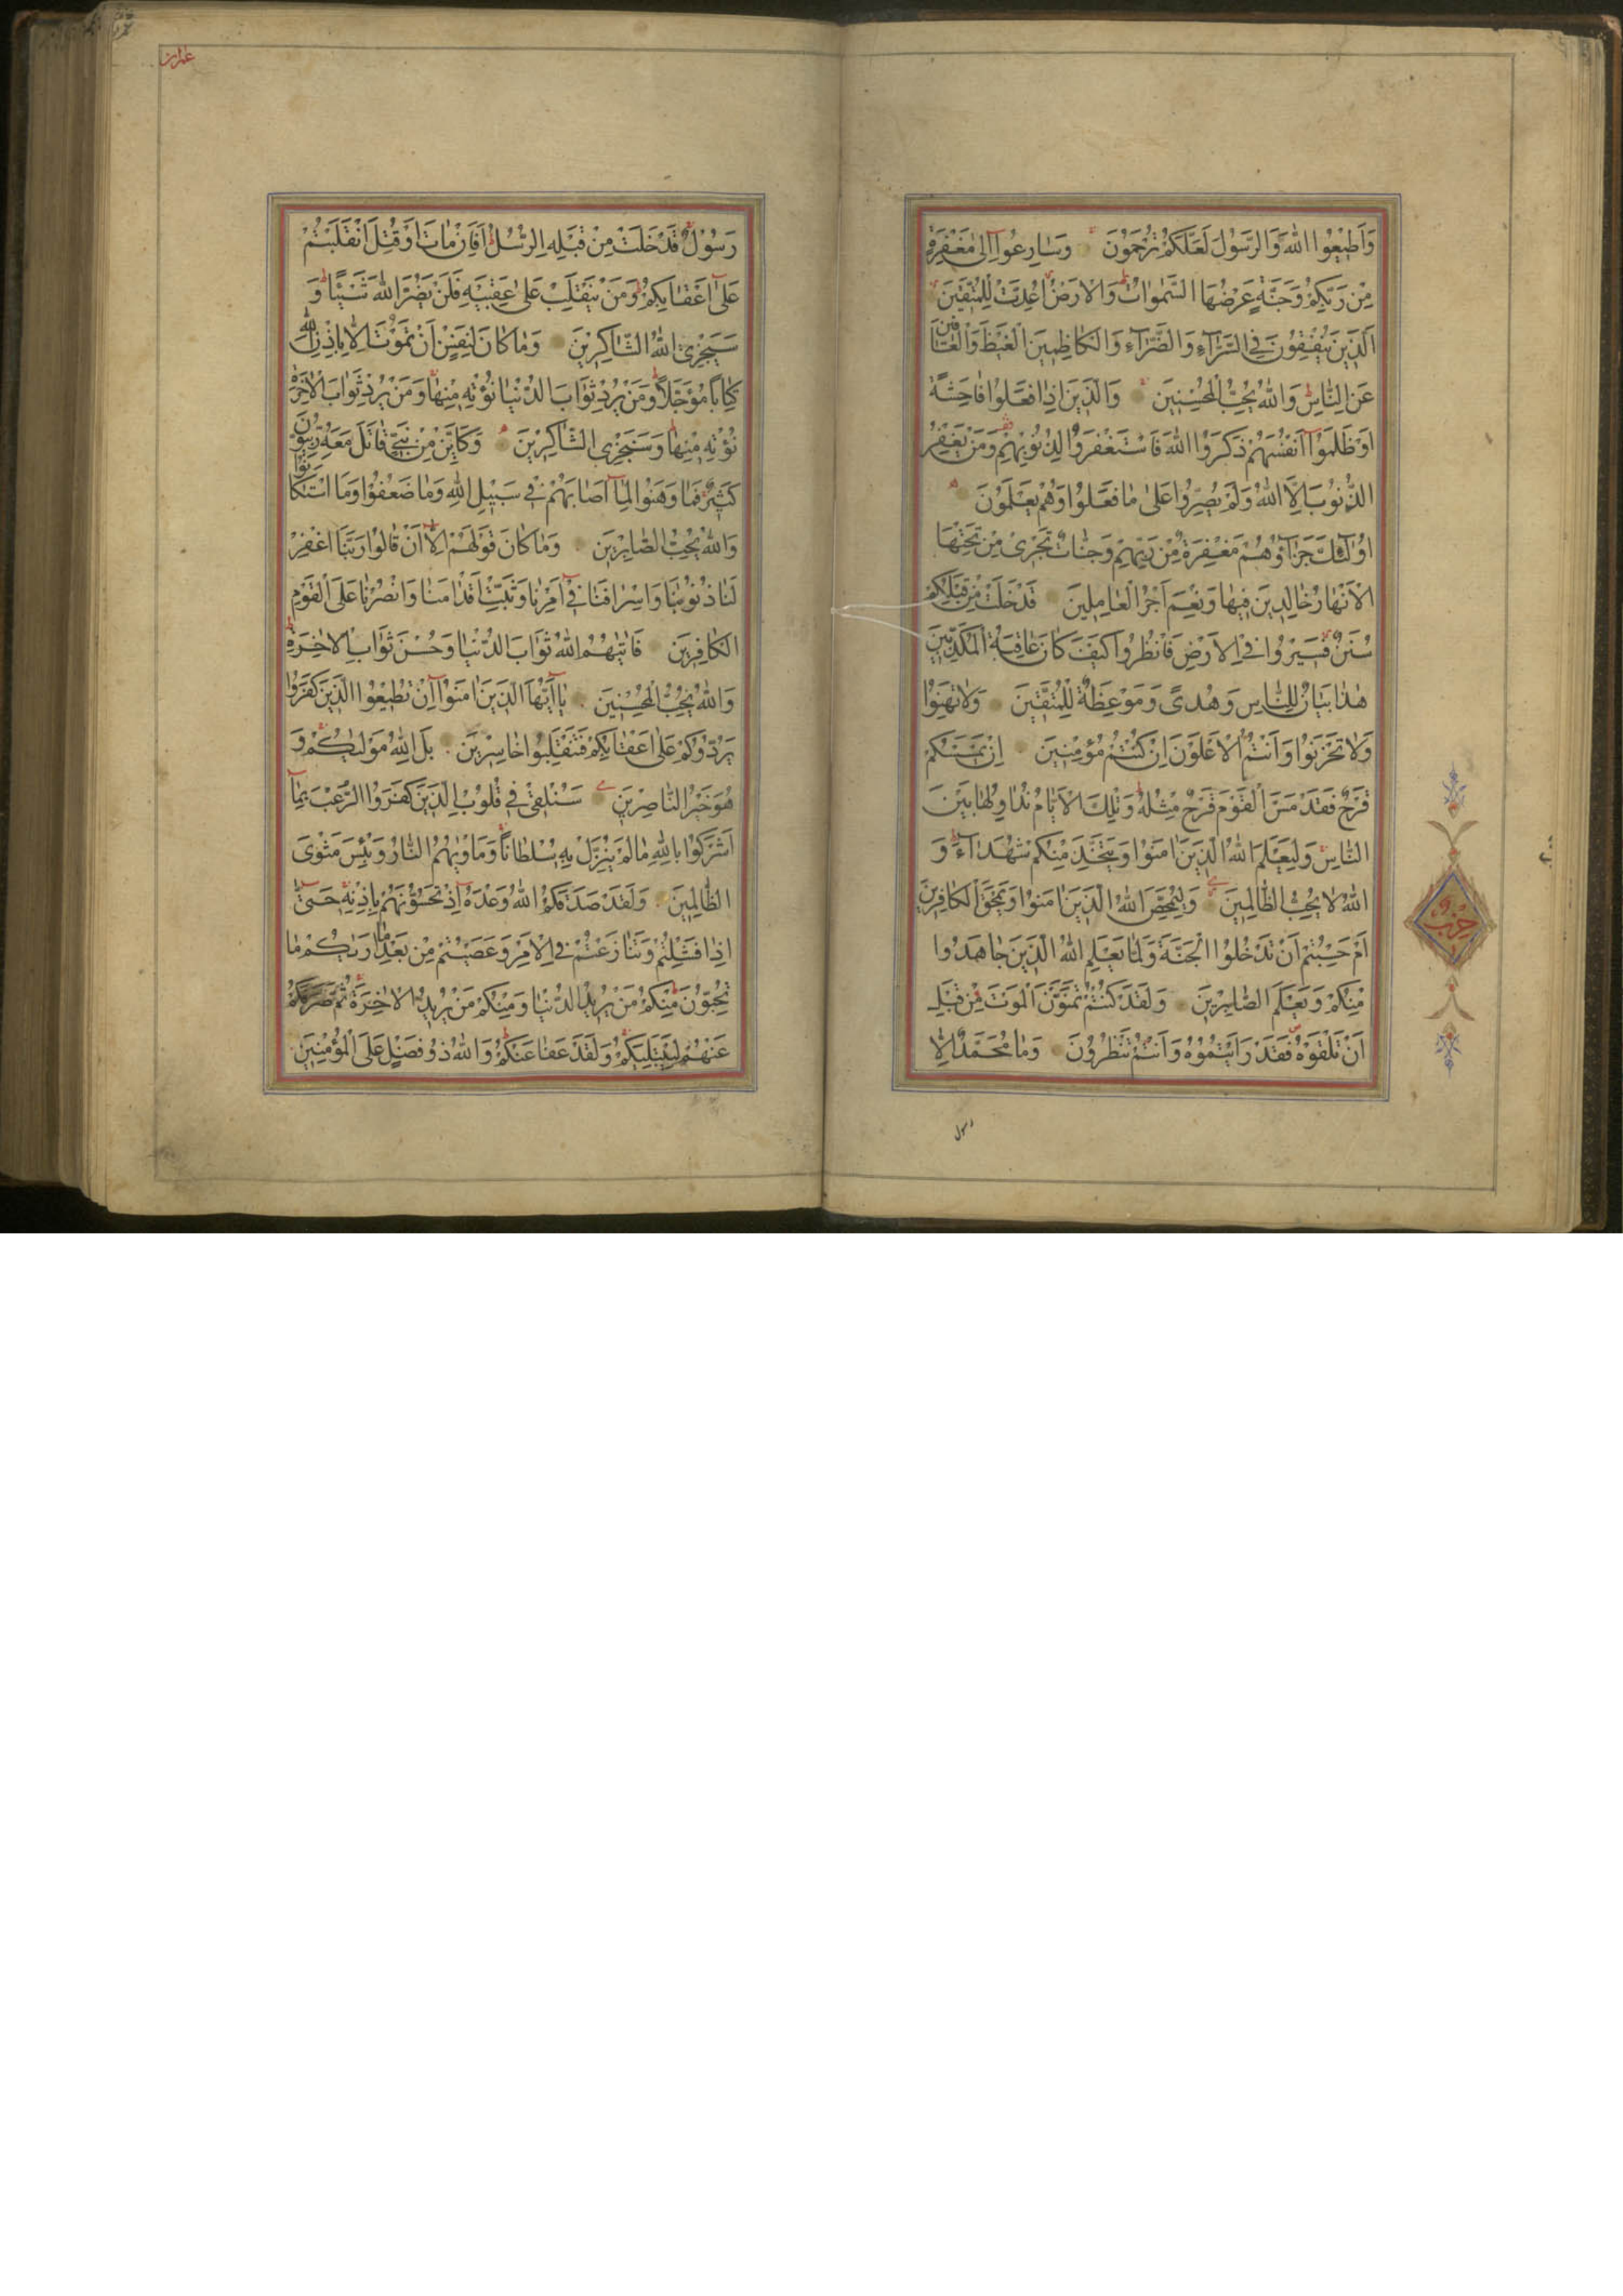 وَاَطِيعُوا اللّٰهَ وَالرَّسُولَ لَعَلَّكُمْ تُرْحَمُونَ وَسَارِعُوا اِلٰى مَغْفِرَةٍ
مِنْ رَبِّكُمْ وَجَنَّةٍ عَرْضُهَا السَّمٰوَاتُ وَالْاَرْضُ اُعِدَّتْ لِلْمُتَّقِينَ
اَلَّذِينَ يُنْفِقُونَ فِي السَّرَّاءِ وَالضَّرَّاءِ وَالْكَاظِمِينَ الْغَيْظَ وَالْعَافِينَ
عَنِ النَّاسِ وَاللّٰهُ يُحِبُّ الْمُحْسِنِينَ وَالَّذِينَ اِذَا فَعَلُوا فَاحِشَةً
اَوْ ظَلَمُوا اَنْفُسَهُمْ ذَكَرُوا اللّٰهَ فَاسْتَغْفَرُوا لِذُنُوبِهِمْ وَمَنْ يَغْفِرُ
الذُّنُوبَ اِلَّا اللّٰهُ وَلَمْ يُصِرُّوا عَلٰى مَا فَعَلُوا وَهُمْ يَعْلَمُونَ
اُولٰئِكَ جَزَاؤُهُمْ مَغْفِرَةٌ مِنْ رَبِّهِمْ وَجَنَّاتٌ تَجْرِى مِنْ تَحْتِهَا
الْاَنْهَارُ خَالِدِينَ فِيهَا وَنِعْمَ اَجْرُ الْعَامِلِينَ قَدْ خَلَتْ مِنْ قَبْلِكُمْ
سُنَنٌ فَسِيرُوا فِي الْاَرْضِ فَانْظُرُوا كَيْفَ كَانَ عَاقِبَةُ الْمُكَذِّبِينَ
هٰذَا بَيَانٌ لِلنَّاسِ وَهُدًى وَمَوْعِظَةٌ لِلْمُتَّقِينَ وَلَا تَهِنُوا
وَلَا تَحْزَنُوا وَاَنْتُمُ الْاَعْلَوْنَ اِنْ كُنْتُمْ مُؤْمِنِينَ اِنْ يَمْسَسْكُمْ
قَرْحٌ فَقَدْ مَسَّ الْقَوْمَ قَرْحٌ مِثْلُهُ وَتِلْكَ الْاَيَّامُ نُدَاوِلُهَا بَيْنَ
النَّاسِ وَلِيَعْلَمَ اللّٰهُ الَّذِينَ اٰمَنُوا وَيَتَّخِذَ مِنْكُمْ شُهَدَاءَ وَ
اللّٰهُ لَا يُحِبُّ الظَّالِمِينَ وَلِيُمَحِّصَ اللّٰهُ الَّذِينَ اٰمَنُوا وَيَمْحَقَ الْكَافِرِينَ
اَمْ حَسِبْتُمْ اَنْ تَدْخُلُوا الْجَنَّةَ وَلَمَّا يَعْلَمِ اللّٰهُ الَّذِينَ جَاهَدُوا
مِنْكُمْ وَيَعْلَمَ الصَّابِرِينَ وَلَقَدْ كُنْتُمْ تَمَنَّوْنَ الْمَوْتَ مِنْ قَبْلِ
اَنْ تَلْقَوْهُ فَقَدْ رَاَيْتُمُوهُ وَاَنْتُمْ تَنْظُرُونَ وَمَا مُحَمَّدٌ اِلَّا
رسول
حزب
عمران
رَسُولٌ قَدْ خَلَتْ مِنْ قَبْلِهِ الرُّسُلُ اَفَاِنْ مَاتَ اَوْ قُتِلَ انْقَلَبْتُمْ
عَلٰى اَعْقَابِكُمْ وَمَنْ يَنْقَلِبْ عَلٰى عَقِبَيْهِ فَلَنْ يَضُرَّ اللّٰهَ شَيْئًا وَ
سَيَجْزِى اللّٰهُ الشَّاكِرِينَ وَمَا كَانَ لِنَفْسٍ اَنْ تَمُوتَ اِلَّا بِاِذْنِ اللّٰهِ
كِتَابًا مُؤَجَّلًا وَمَنْ يُرِدْ ثَوَابَ الدُّنْيَا نُؤْتِهِ مِنْهَا وَمَنْ يُرِدْ ثَوَابَ الْاٰخِرَةِ
نُؤْتِهِ مِنْهَا وَسَنَجْزِى الشَّاكِرِينَ وَكَاَيِّنْ مِنْ نَبِيٍّ قَاتَلَ مَعَهُ رِبِّيُّونَ
كَثِيرٌ فَمَا وَهَنُوا لِمَا اَصَابَهُمْ فِي سَبِيلِ اللّٰهِ وَمَا ضَعُفُوا وَمَا اسْتَكَانُوا
وَاللّٰهُ يُحِبُّ الصَّابِرِينَ وَمَا كَانَ قَوْلَهُمْ اِلَّا اَنْ قَالُوا رَبَّنَا اغْفِرْ
لَنَا ذُنُوبَنَا وَاِسْرَافَنَا فِي اَمْرِنَا وَثَبِّتْ اَقْدَامَنَا وَانْصُرْنَا عَلَى الْقَوْمِ
الْكَافِرِينَ فَاٰتٰيهُمُ اللّٰهُ ثَوَابَ الدُّنْيَا وَحُسْنَ ثَوَابِ الْاٰخِرَةِ
وَاللّٰهُ يُحِبُّ الْمُحْسِنِينَ يَا اَيُّهَا الَّذِينَ اٰمَنُوا اِنْ تُطِيعُوا الَّذِينَ كَفَرُوا
يَرُدُّوكُمْ عَلٰى اَعْقَابِكُمْ فَتَنْقَلِبُوا خَاسِرِينَ بَلِ اللّٰهُ مَوْلٰيكُمْ وَ
هُوَ خَيْرُ النَّاصِرِينَ سَنُلْقِى فِي قُلُوبِ الَّذِينَ كَفَرُوا الرُّعْبَ بِمَا
اَشْرَكُوا بِاللّٰهِ مَا لَمْ يُنَزِّلْ بِهِ سُلْطَانًا وَمَاْوٰيهُمُ النَّارُ وَبِئْسَ مَثْوَى
الظَّالِمِينَ وَلَقَدْ صَدَقَكُمُ اللّٰهُ وَعْدَهُ اِذْ تَحُسُّونَهُمْ بِاِذْنِهِ حَتّٰى
اِذَا فَشِلْتُمْ وَتَنَازَعْتُمْ فِي الْاَمْرِ وَعَصَيْتُمْ مِنْ بَعْدِ مَا اَرٰيكُمْ مَا
تُحِبُّونَ مِنْكُمْ مَنْ يُرِيدُ الدُّنْيَا وَمِنْكُمْ مَنْ يُرِيدُ الْاٰخِرَةَ ثُمَّ صَرَفَكُمْ
عَنْهُمْ لِيَبْتَلِيَكُمْ وَلَقَدْ عَفَا عَنْكُمْ وَاللّٰهُ ذُو فَضْلٍ عَلَى الْمُؤْمِنِينَ